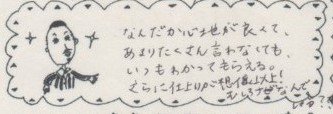 なんだか心地が良くて、
あまりたくさん言わなくても、
いつもわかってもらえる。
さらに仕上りが想像以上!
なんで